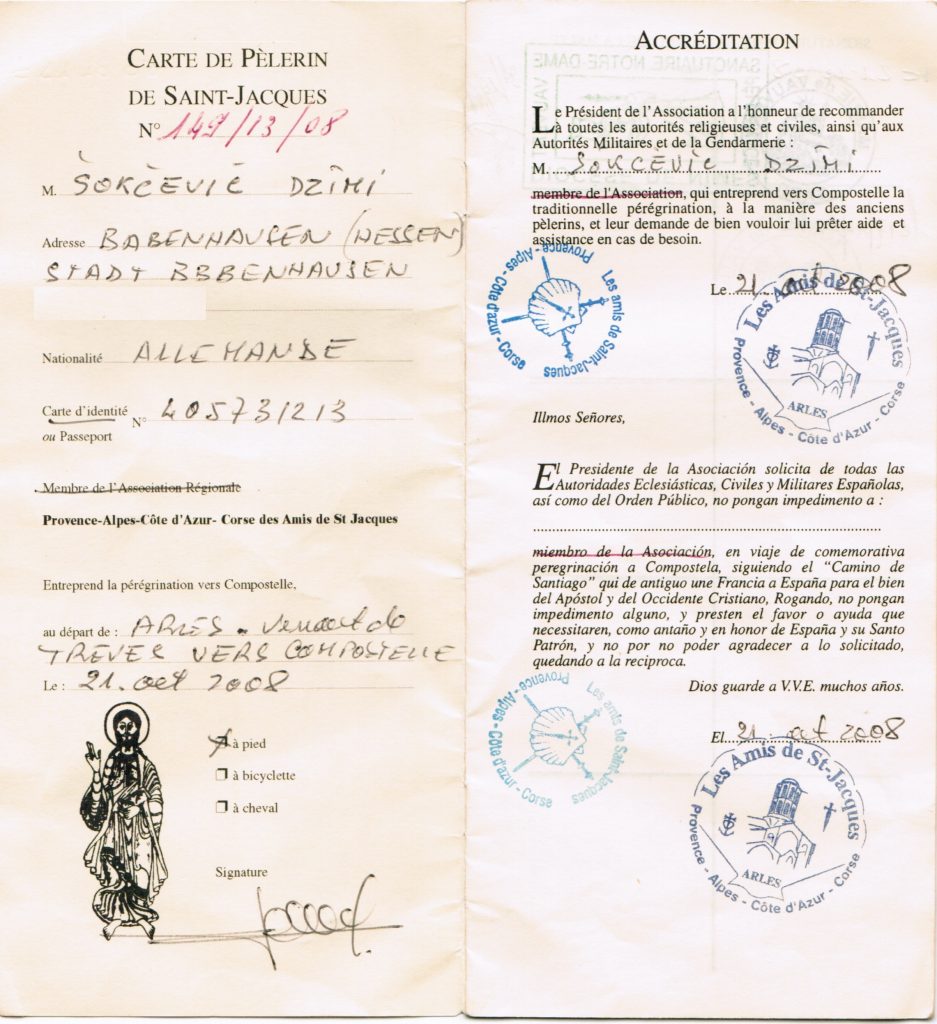 CARTE DE PÈLERIN
DE SAINT-JACQUES
N° 149/13/08
M. ŠOKČEVIĆ DZÎMI
Adresse BABENHAUSEN (HESSEN)
STADT BBBENHAUSEN
Nationalité ALLEMANDE
Carte d'identité N° 40573/213
ou Passeport
Membre de l'Association Régionale
Provence-Alpes-Côte d'Azur- Corse des Amis de St Jacques
Entreprend la pérégrination vers Compostelle,
au départ de : ARLES - Venant de
TREVES VERS COMPOSTELLE
Le : 21. oct 2008
à pied
à bicyclette
à cheval
Signature
ACCRÉDITATION
SANCTUAIRE NOTRE-DAME
Le Président de l'Association a l'honneur de recommander
à toutes les autorités religieuses et civiles, ainsi qu'aux
Autorités Militaires et de la Gendarmerie :
M. ŠOKČEVIĆ DZÎMI
membre de l'Association, qui entreprend vers Compostelle la
traditionnelle pérégrination, à la manière des anciens
pèlerins, et leur demande de bien vouloir lui prêter aide et
assistance en cas de besoin.
Les amis de Saint-Jacques
Provence - Alpes - Côte d'azur - Corse
Le 21. oct 2008
Les Amis de St-Jacques
ARLES
Provence - Alpes - Côte d'Azur - Corse
Illmos Señores,
El Presidente de la Asociación solicita de todas las
Autoridades Eclesiásticas, Civiles y Militares Españolas,
así como del Orden Público, no pongan impedimento a :
miembro de la Asociación, en viaje de comemorativa
peregrinación a Compostela, siguiendo el "Camino de
Santiago" qui de antiguo une Francia a España para el bien
del Apóstol y del Occidente Cristiano, Rogando, no pongan
impedimento alguno, y presten el favor o ayuda que
necessitaren, como antaño y en honor de España y su Santo
Patrón, y no por no poder agradecer a lo solicitado,
quedando a la reciproca.
Dios guarde a V.V.E. muchos años.
Les amis de Saint-Jacques
Provence - Alpes - Côte d'azur - Corse
El 21. oct 2008
Les Amis de St-Jacques
ARLES
Provence - Alpes - Côte d'Azur - Corse